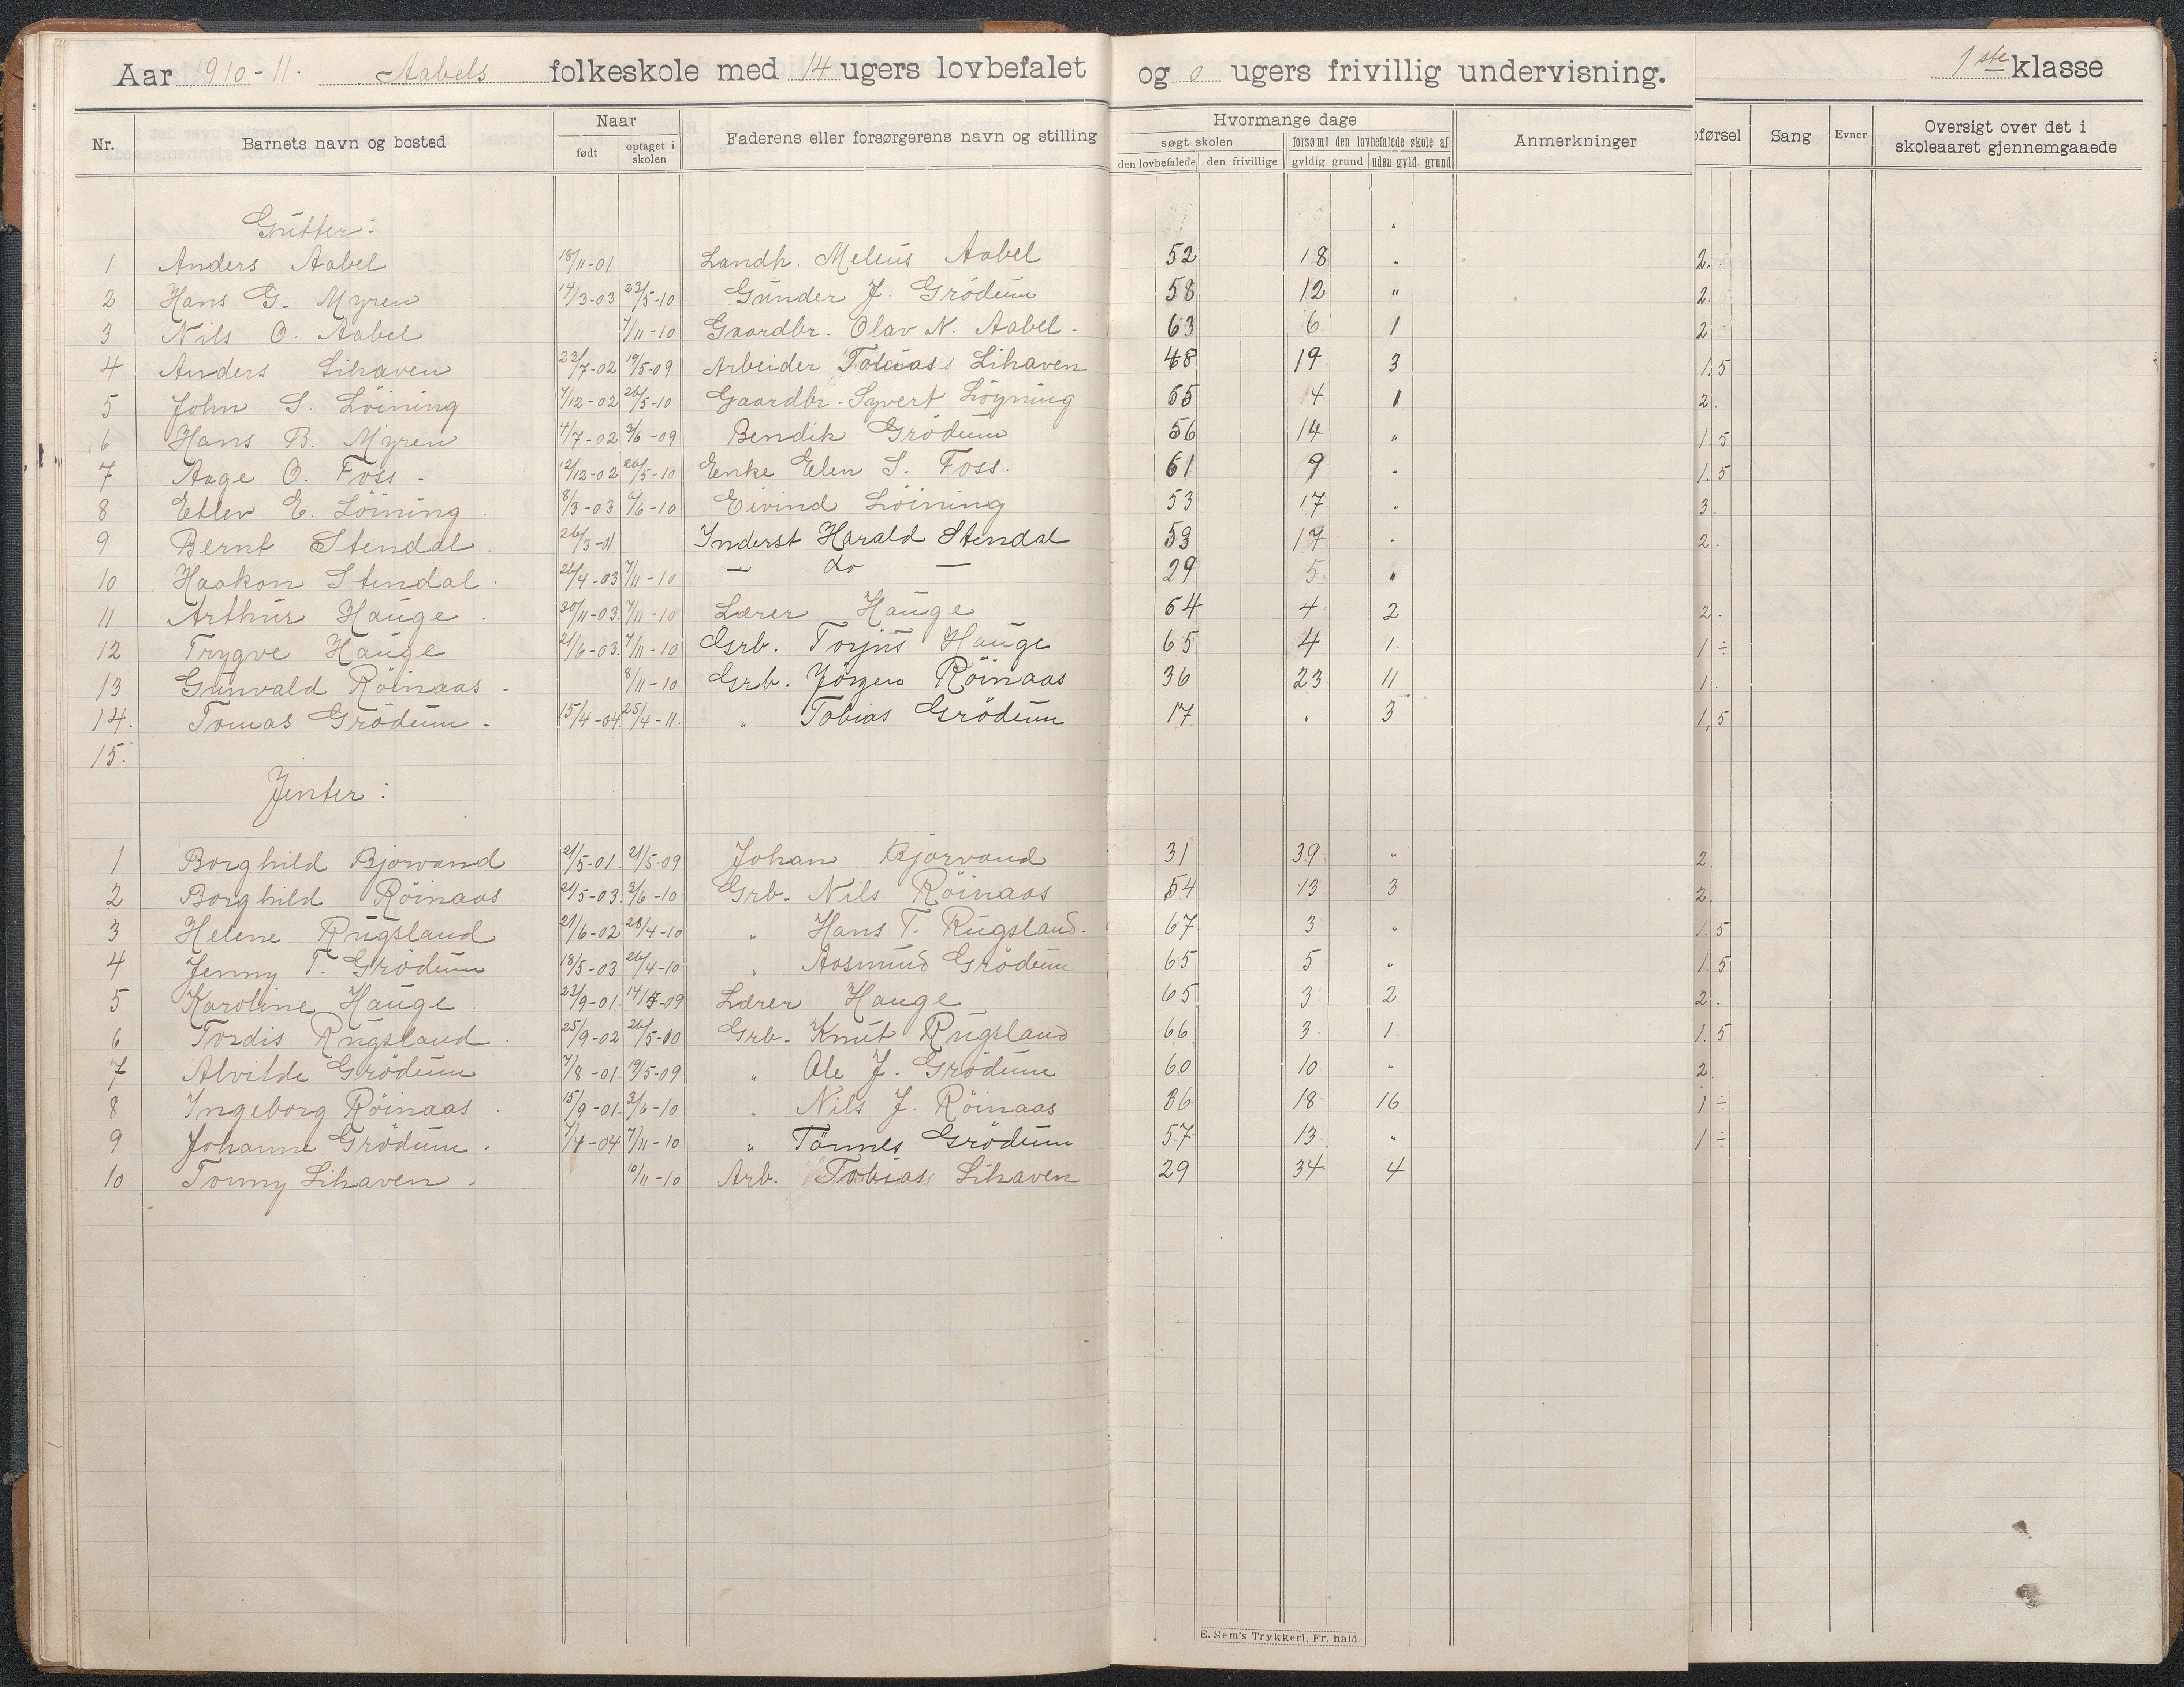 Aar 1910-11. Aabels folkeskole med 14 ugers lovbefalet og 0 ugers frivillig undervisning. 1ste klasse
Nr. Barnets navn og bosted Naar født optaget i skolen Faderens eller forsørgerens navn og stilling Hvormange dage søgt skolen den lovbefalede den frivillige forsømt den lovbefalede skole af gyldig grund uden gyld. grund Anmerkninger oførsel Sang Evner Oversigt over det i skoleaaret gjennemgaaede
Gutter:
1 Anders Aabel 18/11-01 Landh. Meleus Aabel 52 18 " 2.
2 Hans G. Myren 14/3-03 23/5-10 Gunder J. Grödum 58 12 " 2.
3 Nils O. Aabel 7/11-10 Gaardbr. Olav N. Aabel. 63 6 1 2
4 Anders Lihaven 23/7-02 19/5-09 Arbeider Tobias Lihaven 48 19 3 1,5
5 John S. Löining 7/12-02 26/5-10 Gaardbr. Syvert Löyning 65 4 1 2.
6 Hans B. Myren 4/7-02 3/6-09 Bendik Grödum 56 14 " 1 5
7 Aage O. Foss. 12/12-02 26/5-10 Enke Elen S. Foss. 61 9 " 1.5
8 Etlev E. Löining. 8/3-03 6/6-10 Eivind Löining 53 17 " 3.
9 Bernt Stendal. 26/3-01 Inderst Harald Stendal 53 17 " 2.
10 Haakon Stendal. 26/4-03 7/11-10 — do — 29 5 "
11 Arthur Hauge. 30/11-03. 7/11-10 Lærer Hauge 64 4 2 2.
12 Trygve Hauge 21/6-03. 7/11-10 Grb. Torjus Hauge 65 4 1. 1 ÷
13 Gunvald Röinaas. 8/11-10 Grb. Jörgen Röinaas 36 23 11 1.
14. Tomas Grödum. 15/4-04. 25/4-11. " Tobias Grödum 17 " 3 1,5
15.
Jenter:
1 Borghild Bjorvand 21/5-01. 21/5-09 Johan Bjorvand 31 39 " 2
2 Borghild Röinaas 21/5-03. 3/6-10 Grb. Nils Röinaas 54 13 3 2.
3 Helene Rugsland 21/6-02 28/4-10 " Hans T. Rugsland. 67 3 " 1.5
4 Jenny T. Grödum 18/5-03 26/4-10 " Aasmund Grödum 65 5 " 1.5
5 Karoline Hauge. 23/9-01. 14/5-09 Lærer Hauge 65 3 2 2.
6 Tordis Rugsland. 25/9-02 26/5-10 Grb. Knut Rugsland 66 3 1. 1.5
7 Alvilde Grödum 7/8-01. 19/5-09 " Ole J. Grödum 60 10 " 2.
8 Ingeborg Röinaas. 15/9-01. 3/6-10 " Nils J. Röinaas 36 18 16 1 ÷
9 Johanne Grödum. 7/4-04 7/11-10 " Tönnes Grödum 57 13 " 1 ÷
10 Tonny Lihaven. 10/11-10 Arb. Tobias Lihaven 29 34 4
E. Sem's Trykkeri, Fr. hald